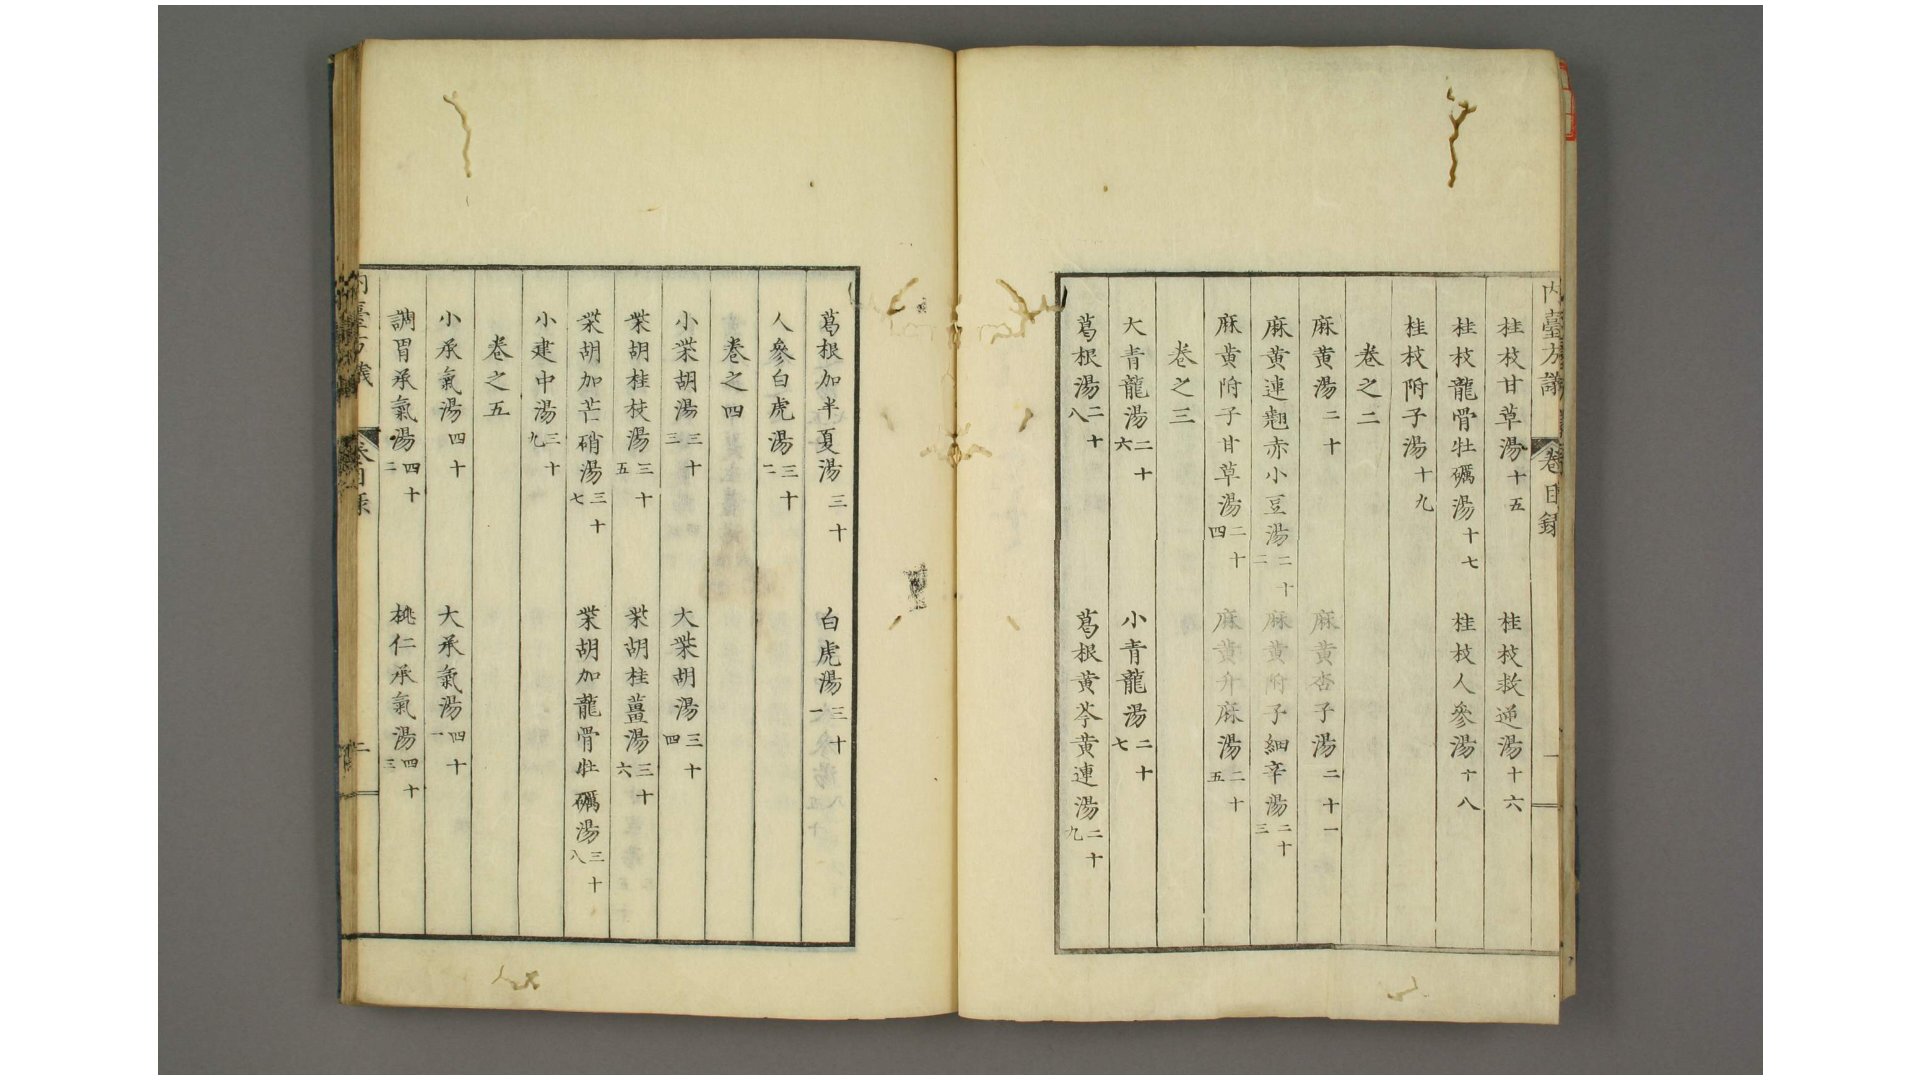 桂枝甘草湯十五 桂枝救逆湯十六
桂枝龍骨牡礪湯十七 桂枝人參湯十八
桂枝附子湯十九
卷之二
麻黄湯二十 麻黄杏子湯二十一
麻黄連翹赤小豆湯二十二 麻黄附子細辛湯二十三
麻黄附子甘草湯二十四 麻黄升麻湯二十五
卷之三
大青龍湯二十六 小青龍湯二十七
葛根湯二十八 葛根黄芩黄連湯二十九
葛根加半夏湯三十 白虎湯三十一
人參白虎湯三十二
卷之四
小柴胡湯三十三 大柴胡湯三十四
柴胡桂枝湯三十五 柴胡桂薑湯三十六
柴胡加芒硝湯三十七 柴胡加龍骨牡礪湯三十八
小建中湯三十九
卷之五
小承氣湯四十 大承氣湯四十一
調胃承氣湯四十二 桃仁承氣湯四十三
卷目録